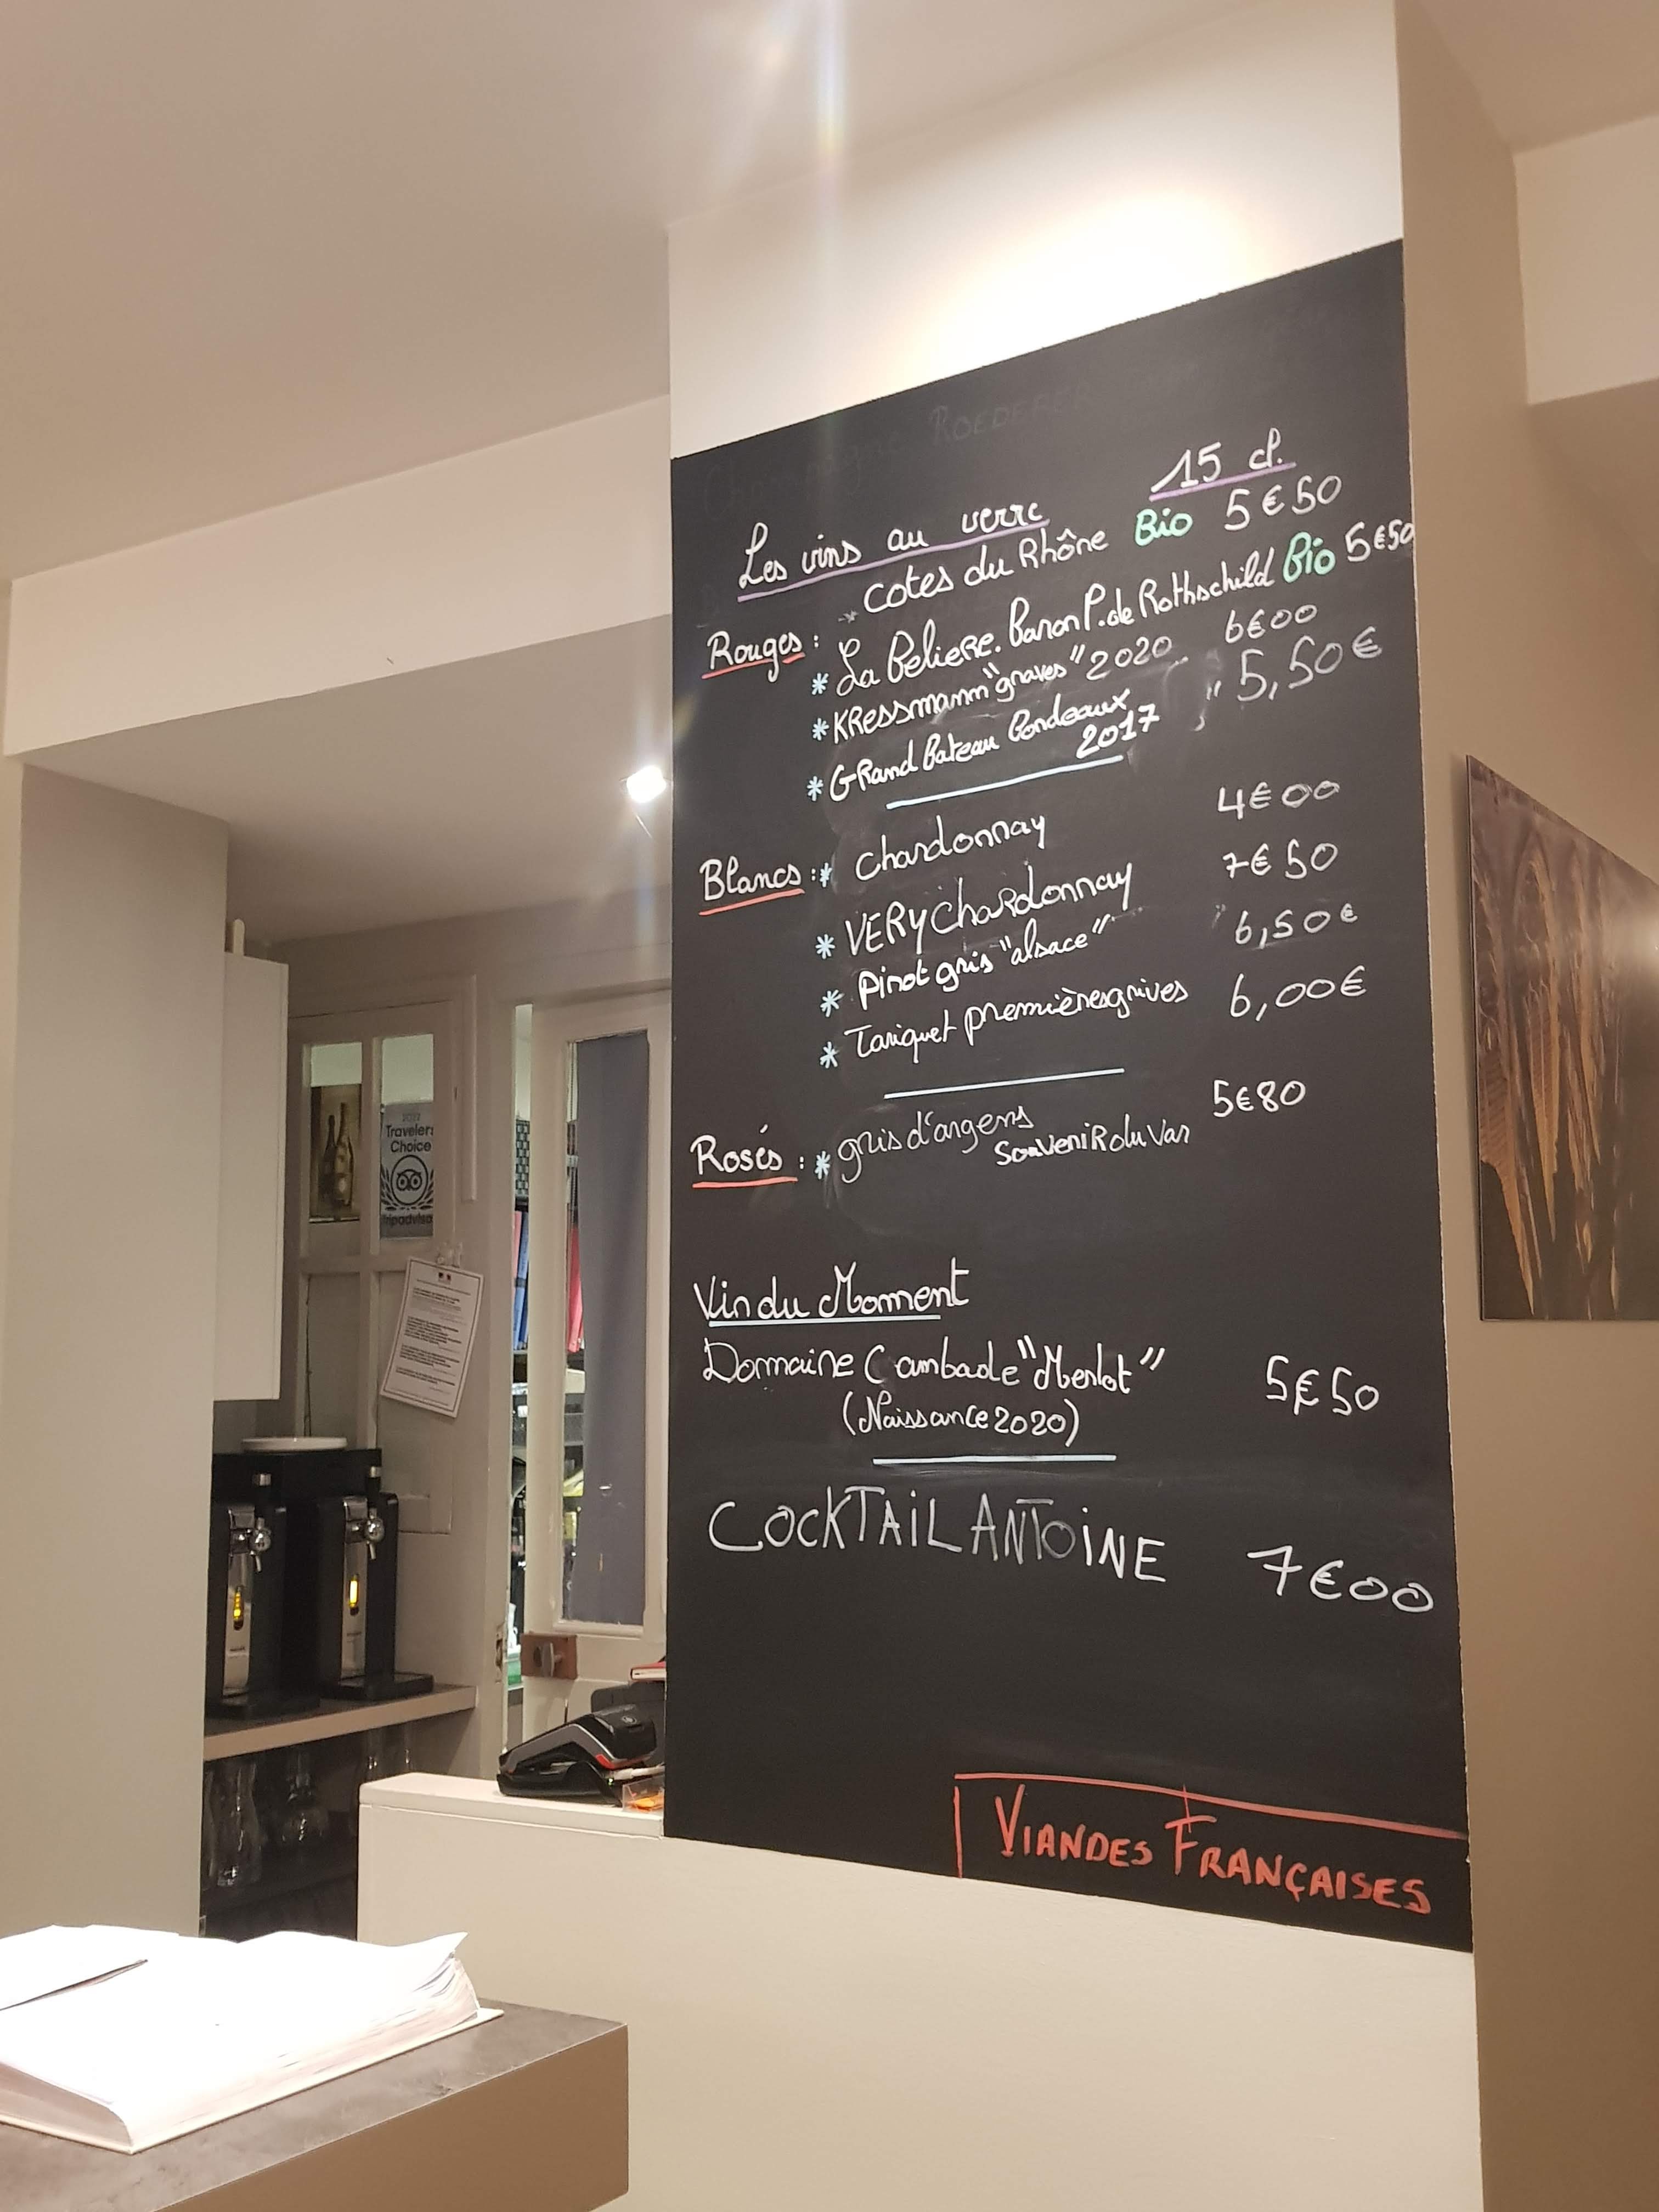 Champagne ROEDERER
15 cl.
Les vins au verre
Rouges : * cotes du Rhône Bio 5€50
* La Beliere. Baron P. de Rothschild Bio 5€50
* KRessmann "graves" 2020 6€00
* GRand Bateau Bordeaux 5,50€
2017
Blancs : * Chardonnay 4€00
* VERY ChaRdonnay 7€50
* pinot gris "alsace" 6,50€
* Tariquet premières grives 6,00€
Rosés : * gris d'argens 5€80
SouveniR du Var
Vin du Moment
Domaine Cambade "Merlot" 5€50
(Naissance 2020)
COCKTAiL ANTOiNE 7€00
VIANDES FRANÇAISES
2022
Travelers'
Choice
Tripadvisor